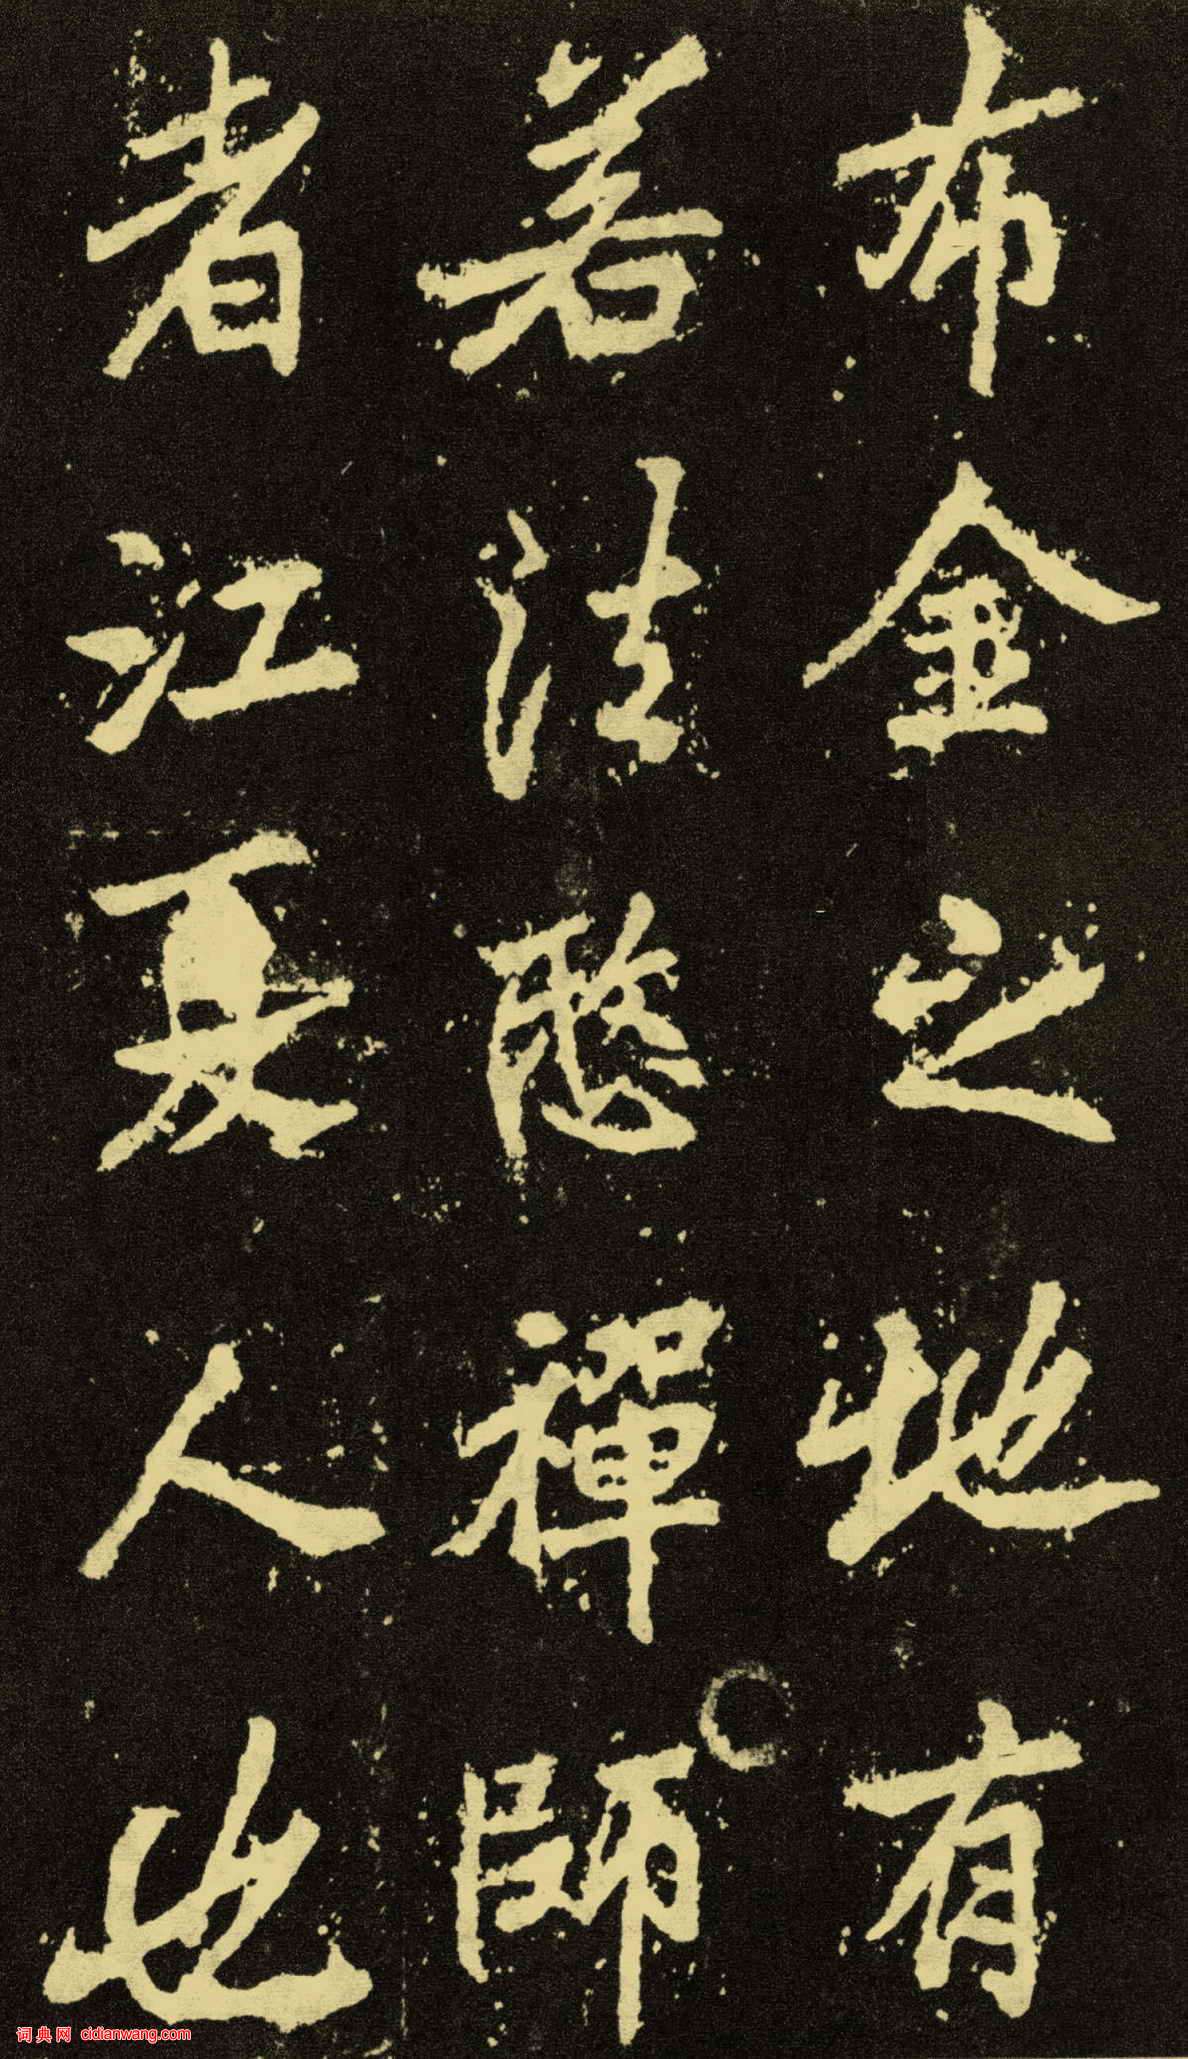 布金之地有
若法愍禪師
者江夏人也
词典网 cidianwang.com